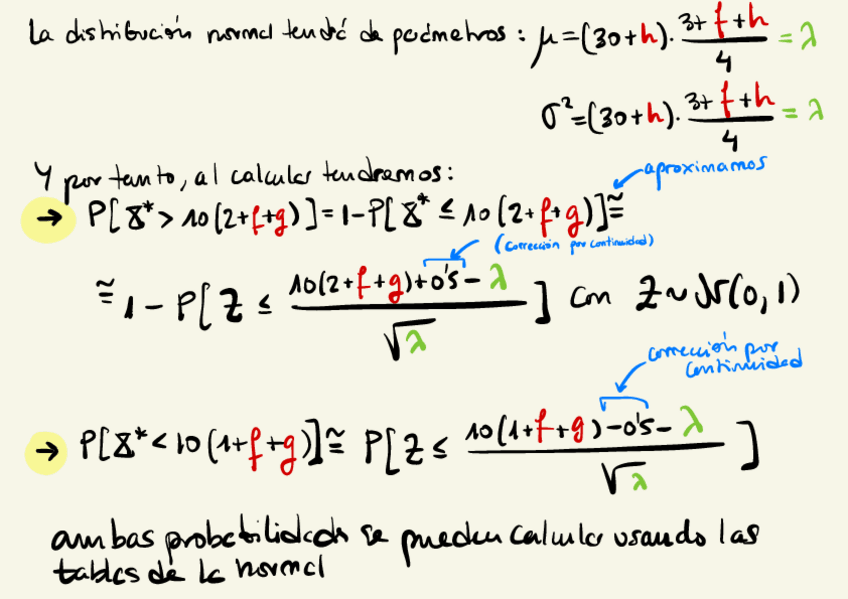 La distribución normal tendrá de parámetros: μ=(30+h)·(3+f+h)/4 = λ
σ²=(30+h)·(3+f+h)/4 = λ
Y por tanto, al calcular tendremos:
aproximamos
→ P[X* > 10(2+f+g)] = 1-P[X* ≤ 10(2+f+g)] ≅
(corrección por continuidad)
≅ 1-P[Z ≤ (10(2+f+g)+0'5-λ)/√λ] con Z~N(0,1)
corrección por
continuidad
→ P[X* < 10(1+f+g)] ≅ P[Z ≤ (10(1+f+g)-0'5-λ)/√λ]
ambas probabilidades se pueden calcular usando las
tablas de la normal